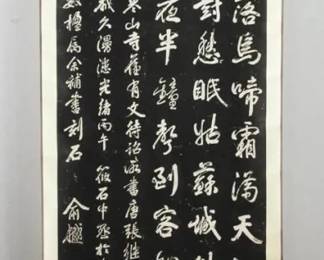 落烏啼霜滿天
對愁眠姑蘇城外
夜半鐘聲到客
寒山寺舊有文待詔所書唐張繼
歲久漫漶光緒丙午筱石中丞於
數楹屬余補書刻石
俞樾